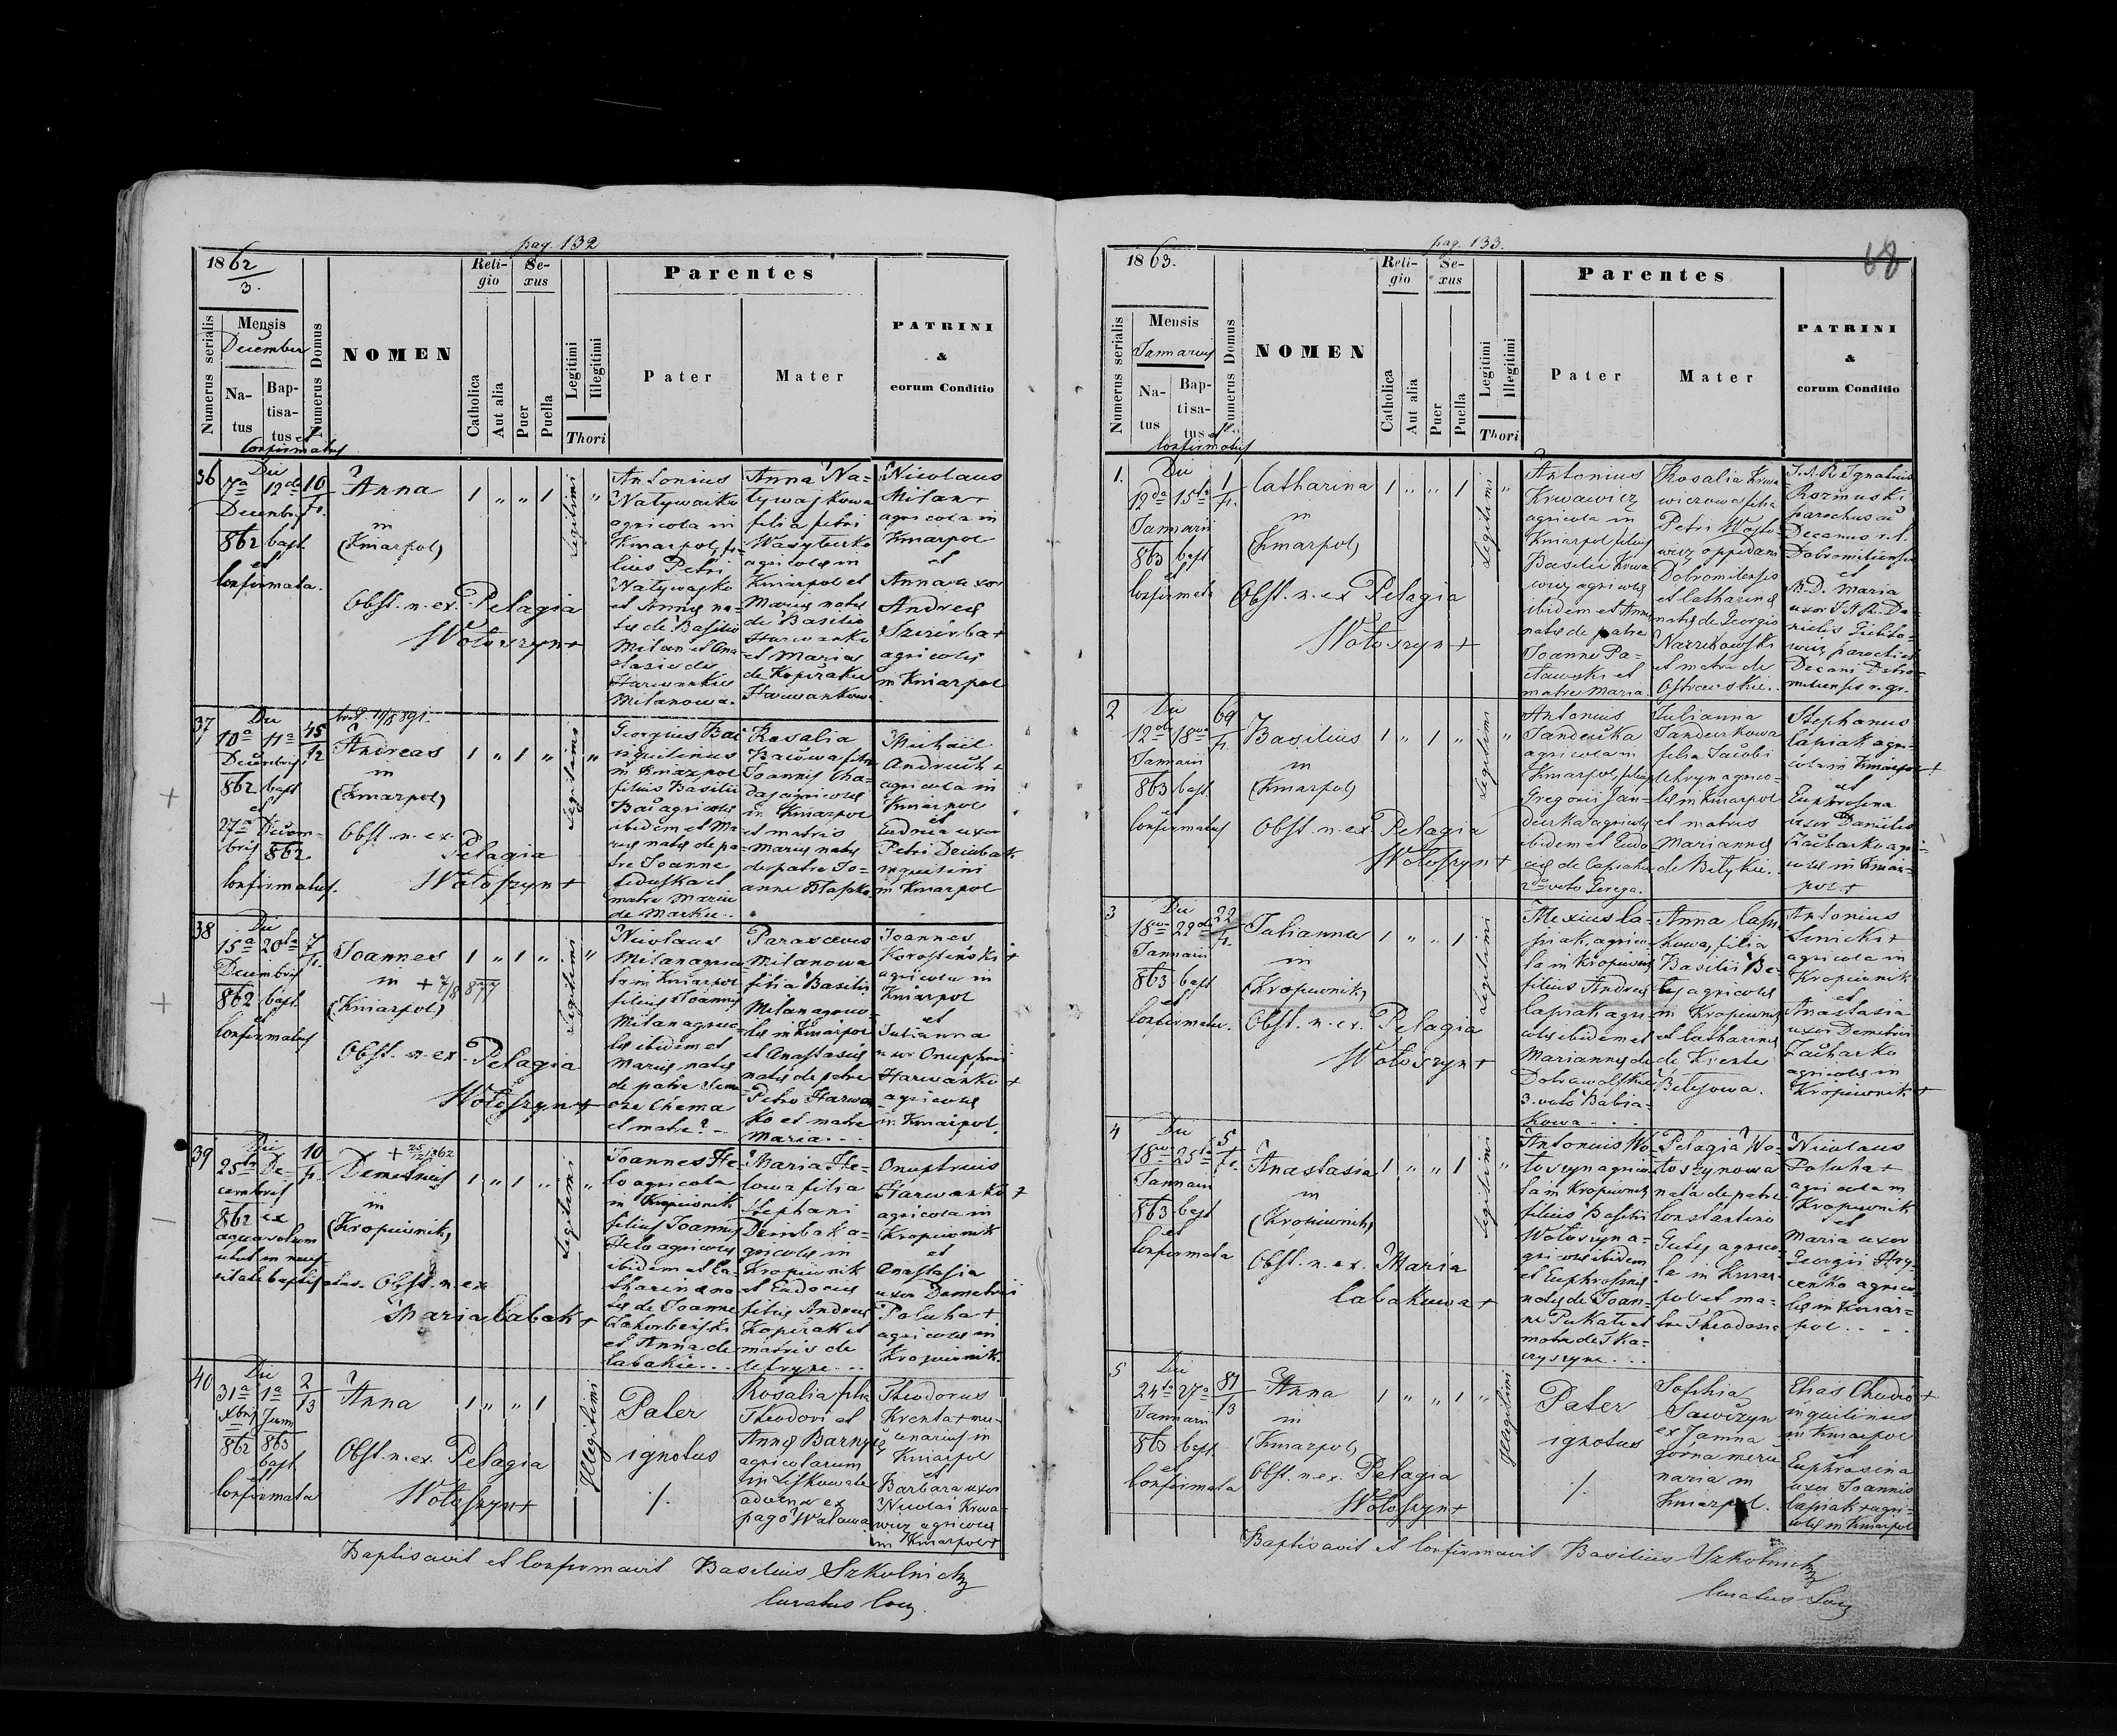 pag. 132
1862/3.
Numerus serialis
Mensis
December
Na-
tus
Bap-
tisa-
tus et
Confirmatus
Numerus Domus
NOMEN
Reli-
gio
Catholica
Aut alia
Se-
xus
Puer
Puella
Legitimi
Illegitimi
Thori
Parentes
Pater
Mater
PATRINI
&
eorum Conditio
36
Die
7a 12da
Decembris
862 bapt.
et
Confirmata.
10
Anna
in
(Kniazpol)
Obst. n. ex. Pelagia
Wołoszyn +
1 " " 1
Legitimi
"
Antonius
agricola in
Kniazpol, fi-
lius Petri
et Annae na-
tae de Basilio
Milan et Ana-
Milanowa.
Anna Na-
filia Petri
agricolae in
Kniazpol et
Mariae natae
de Basilio
Harwanko
et Maria
Nicolaus
Milan +
agricola in
Kniazpol
et
Anna uxor
Andreae
Szczerba +
agricolae
in Kniazpol
37
Die
10a 11a
Decembris
862 bapt
et
27a Decem-
bris 862
Confirmatus.
45
12
Andreas
in
(Kniazpol)
Obst. n. ex.
Pelagia
Wołoszyn +
1 " 1 "
Legitimi
"
Georgius Bac
inquilinus
in Kniazpol
filius Basilii
Bac agricolae
ibidem et Ma-
riae natae de pa-
tre Joanne
Feduska et
matre Maria
de Markie..
Rosalia
Joannis Cha-
in Kniazpol
et matris
Mariae natae
de patre Jo-
anne
Michaël
Andruch +
agricola in
Kniazpol
et
Eudocia uxor
Petri Deinbak
inquilini
in Kniazpol
38
Die
15a 20ta
Decembris
862 bapt.
et
Confirmatus
7
Joannes
in + 7/8 877
(Kniazpol)
Obst. n. ex. Pelagia
Wołoszyn +
1 " 1 "
Legitimi
"
Nicolaus
Milan agrico-
la in Kniazpol
filius Joannis
Milan agrico-
lae ibidem et
Mariae natae
de patre
et matre? -
Parasceva
Milanowa
filia Basilii
Milan agrico-
lae in Kniazpol
et Anastasiae
natae de patre
Petro Harwan-
ko et matre
Maria...
Joannes
agricola in
Kniazpol
et
Julianna
uxor Onuphrii
Harwanko +
agricolae
in Kniazpol.
39
Die
25ta De-
cembris
862 ex
aqua solum
utut in neces-
sitate baptisatus.
10
+ 25/12 1862
Demetrius
in
(Kropiwnik)
Obst. n. ex
Maria Cabak +
1 " 1 "
Legitimi
"
Joannes He-
ło agricola
in Kropiwnik
filius Joannis
Heło agricolae
ibidem et Ca-
tharinae na-
tae de Joanne
et Anna de
Cabakie...
Maria He-
łowa filia
Stephani
Deinbak a-
gricolae in
Kropiwnik
et Eudociae
filiae Andreae
Kopczak et
matris de
Onuphrius
Harwanko +
agricola in
Kropiwnik
et
Anastasia
uxor Demetrii
Paluha +
agricolae in
Kropiwnik.
40
Die
31a 1a
Xbris Jann
862 863
bapt
et
Confirmata
2
13
Anna
Obst. n. ex. Pelagia
Wołoszyn +
1 " " 1
Illegitimi
Pater
ignotus
Rosalia filia
Theodori et
agricolarum
in Liskowate
advena ex
pago
Theodorus
Krenta + mer-
cenarius in
Kniazpol
et
Barbara uxor
Nicolai Krwa-
wicz agricolae
in Kniazpol +
Baptisavit et Confirmavit Basilius Szkolnicky
Curatus Loci.
pag. 133.
68
1863.
Numerus serialis
Mensis
Januarius
Na-
tus
Bap-
tisa-
tus et
Confirmatus
Numerus Domus
NOMEN
Reli-
gio
Catholica
Aut alia
Se-
xus
Puer
Puella
Legitimi
Illegitimi
Thori
Parentes
Pater
Mater
PATRINI
&
eorum Conditio
1.
Die
12da 15ta
Januarii
863 bapt
et
Confirmata
1
Catharina
in
(Kniazpol)
Obst. n. ex Pelagia
Wołoszyn +
1 " " 1
Legitimi
"
Antonius
Krwawicz
agricola in
Kniazpol filius
Basilii Krwa-
wicz agricolae
ibidem et Annae
natae de patre
Joanne Pa-
cławski et
matre Maria.
Rosalia Krwa-
wiczowa filia
Petri Wojto-
wicz oppidani
Dobromilensis
et Catharinae
natae de Georgio
et matre de
Ostrowskie.
Ignatius
Rozmuski
parochus ac
Decanus r. l.
Dobromilensis
et
M. D. Maria
parochi et
Decani Dobro-
milensis r. gr.
2
Die
12da 18va
Januarii
863 bapt.
et
Confirmatus
69
Basilius
in
(Kniazpol)
Obst. n. ex. Pelagia
Wołoszyn +
1 " 1 "
Legitimi
"
Antonius
Jandurka
agricola in
Kniazpol, filius
Gregorii Jan-
durka agricolae
ibidem et Eudo-
ciae de Capiakie
2do voto Gerega.
Julianna
Jandurkowa
filia Jacobi
lae in Kniazpol
et matris
Mariannae
de Bilykie.
Stephanus
Capiak agri-
cola in Kniazpol +
et
Euphrosina
uxor Danielis
Zacharko agri-
colae in Kniaz-
pol +
3
Die
18va 22da
Januarii
863 bapt
et
Confirmata.
22
Julianna
in
(Kropiwnik)
Obst. n. ex. Pelagia
Wołoszyn +
1 " " 1
Legitimi
Alexius Ca-
piak, agrico-
la in Kropiwnik
filius Andreae
Capiak agri-
colae ibidem et
Mariannae de
Dobrowolskie
3. voto Babia-
kowa...
Anna Capia-
kowa, filia
Basilii
agricolae
in Kropiwnik
et Catharinae
de Krente
Antonius
Linicki +
agricola in
Kropiwnik
et
Anastasia
uxor Demetrii
Zacharko
agricolae in
Kropiwnik +
4
Die
18va 25ta
Januarii
863 bapt
et
Confirmata
5
Anastasia
in
(Kropiwnik)
Obst. n. ex. Maria
Cabakowa +
1 " " 1
Legitimi
"
Antonius Wo-
łoszyn agrico-
la in Kropiwnik
filius Basilii
Wołoszyn a-
gricolae ibidem
et Euphrosinae
natae de Joan-
ne Pukało et
matre de Tka-
czyszyne....
Pelagia Wo-
łoszynowa
nata de patre
Constantino
agrico-
la in Kniaz-
pol et ma-
tre Theodosia
Nicolaus
Paluha +
agricola in
Kropiwnik
et
Maria uxor
Georgii Hry-
cenko agrico-
lae in Kniaz-
pol...
5
Die
24ta 27a
Januarii
863 bapt
et
Confirmata
87
13
Anna
in
(Kniazpol)
Obst. n. ex. Pelagia
Wołoszyn +
1 " " 1
Illegitimi
Pater
ignotus
Sophia
Sawczyn
ex Jamna
górna merce-
naria in
Kniazpol.
Elias Chudio +
inquilinus
in Kniazpol
et
Euphrosina
uxor Joannis
Capiak + agri-
colae in Kniazpol
Baptisavit et Confirmavit Basilius Szkolnicky
Curatus Loci